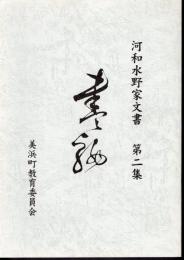 河和水野家文書 第二集
美浜町教育委員会